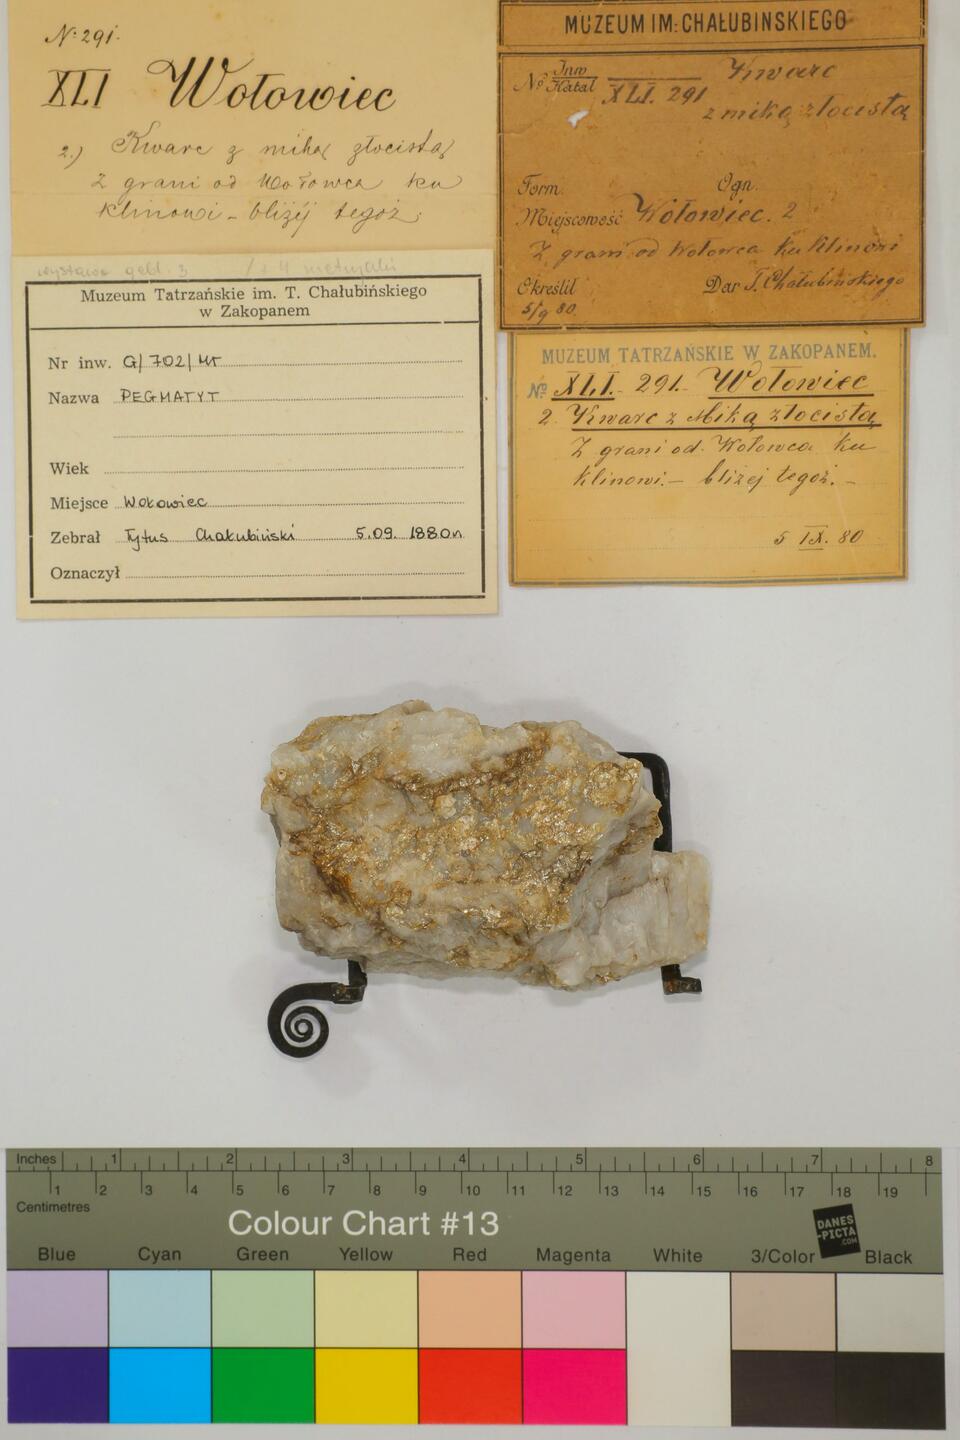 N: 291.
XLI Wołowiec
2.) Kwarc z miką złocistą
Z grani od Wołowca ku
Klinowi – bliżéj tegoż.
MUZEUM IM: CHAŁUBIŃSKIEGO
No Inw XLI. 291 Kwarc
Katal
z miką złocistą
Form. Ogn.
Miejscowość Wołowiec. 2
Z grani od Wołowca ku Klinowi
Określił Dar T. Chałubińskiego
5/9 80
wystawa geol. 3
Muzeum Tatrzańskie im. T. Chałubińskiego
w Zakopanem
Nr inw. G/702/MT
Nazwa PEGMATYT
Wiek
Miejsce Wołowiec
Zebrał Tytus Chałubiński 5.09. 1880r.
Oznaczył
MUZEUM TATRZAŃSKIE W ZAKOPANEM.
No XLI. 291. Wołowiec
2. Kwarc z Miką złocistą
Z grani od Wołowca ku
Klinowi. – bliżej tegoż. –
5 IX. 80
Inches 1 2 3 4 5 6 7 8
1 2 3 4 5 6 7 8 9 10 11 12 13 14 15 16 17 18 19
Centimetres
Colour Chart #13
DANES
-PICTA
.COM
Blue Cyan Green Yellow Red Magenta White 3/Color Black